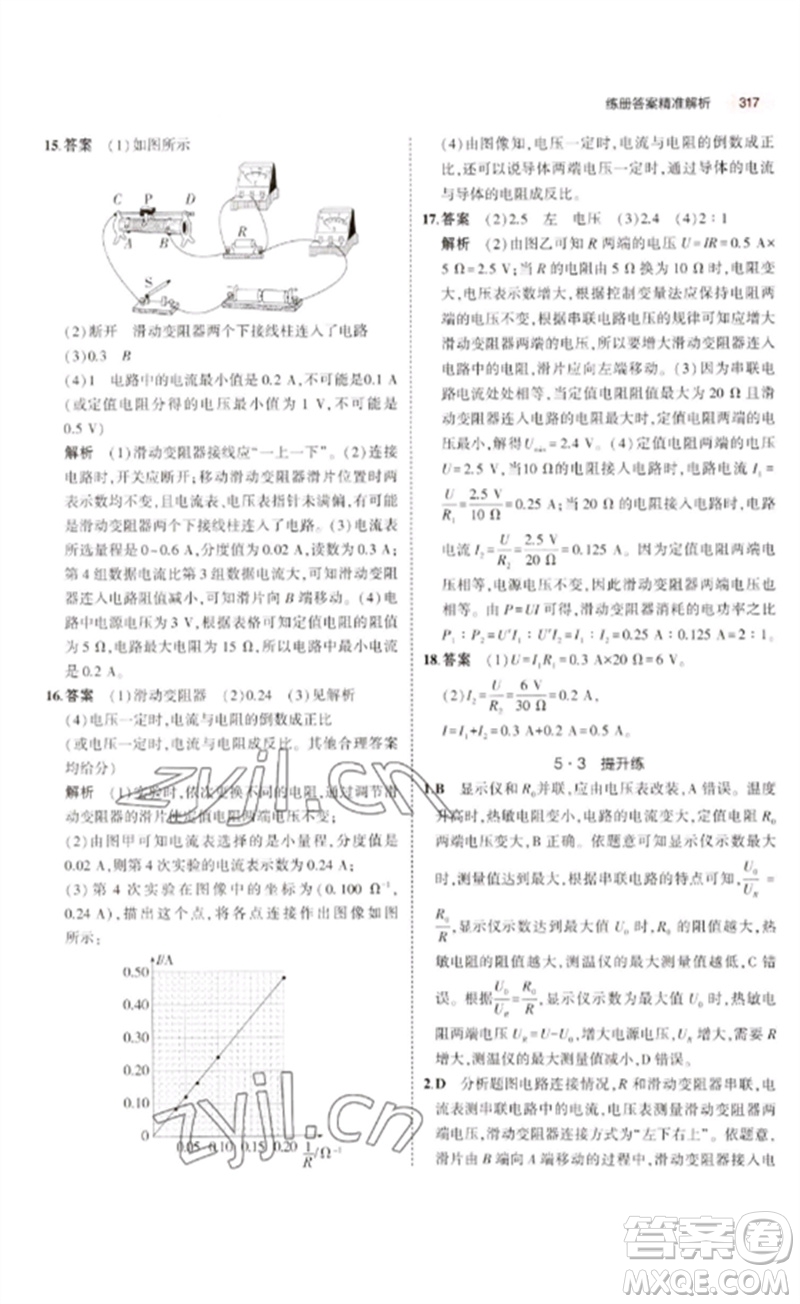 练册答案精准解析 317
15.答案 (1)如图所示
C P D
A B
R
S
(2)断开 滑动变阻器两个下接线柱连入了电路
(3)0.3 B
(4)1 电路中的电流最小值是 0.2 A,不可能是0.1 A
(或定值电阻分得的电压最小值为 1 V,不可能是
0.5 V)
解析 (1)滑动变阻器接线应“一上一下”。(2)连接
电路时,开关应断开;移动滑动变阻器滑片位置时两
表示数均不变,且电流表、电压表指针未满偏,有可能
是滑动变阻器两个下接线柱连入了电路。(3)电流表
所选量程是 0~0.6 A,分度值为 0.02 A,读数为 0.3 A;
第 4 组数据电流比第 3 组数据电流大,可知滑动变阻
器连入电阻值减小,可知滑片向 B 端移动。(4)电
路中电源电压为 3 V,根据表格可知定值电阻的阻值
为 5 Ω,电路最大电阻为 15 Ω,所以电路中最小电流
是 0.2 A。
16.答案 (1)滑动变阻器 (2)0.24 (3)见解析
(4)电压一定时,电流与电阻的倒数成正比
(或电压一定时,电流与电阻成反比。其他合理答案
均给分)
解析 (1)实验时,依次更换不同的电阻,通过调节滑
动变阻器的滑片使定值电阻两端电压不变;
(2)由图甲可知电流表选的是小量程,分度值为
0.02 A,则第 4 次实验的电流表示数为 0.24 A;
(3)第 4 次实验在图像中的坐标为(0.100 Ω⁻¹,
0.24 A),描出这个点,将各点连接作出图像如图
所示;
I/A
0.50
0.40
0.30
0.20
0.10
0 0.05 0.10 0.15 0.20 1/R/Ω⁻¹
(4)由图像知,电压一定时,电流与电阻的倒数成正
比,还可以说导体两端电压一定时,通过导体的电流
与导体的电阻成反比。
17.答案 (2)2.5 左 电压 (3)2.4 (4)2∶1
解析 (2)由图乙可知 R 两端的电压 U=IR=0.5 A×
5 Ω=2.5 V;当 R 的电阻由 5 Ω 换为 10 Ω 时,电阻变
大,电压表示数增大,根据控制变量法应保持电阻两
端的电压不变,所以要增大滑动变阻器两端的电压,
滑动变阻器连入电阻变大,根据串联电路电压的规律可知应增大
滑动变阻器两端的电压,滑片应向左端移动。(3)因为串联电
路电流处处相等,当定值电阻阻值最大为 20 Ω 且滑
动变阻器连入电阻最大时,定值电阻两端的电压最
小,解得 Umin=2.4 V。(4)定值电阻两端的电压为
2.5 V,当 10 Ω 的电阻接入电路时,电路电流 I₁=
U/R₁=2.5 V/10 Ω=0.25 A;当 20 Ω 的电阻接入电路时,电路
电流 I₂=U/R₂=2.5 V/20 Ω=0.125 A。因为定值电阻两端电
压相等,电源电压不变,所以滑动变阻器两端的电压
也相等。由 P=UI 可得,滑动变阻器消耗的电功率比
P₁∶P₂=U′I₁∶U′I₂=I₁∶I₂=0.25 A∶0.125 A=2∶1。
18.答案 (1)U=I₁R₁=0.3 A×20 Ω=6 V。
(2)I₂=U/R₂=6 V/30 Ω=0.2 A,
I=I₁+I₂=0.3 A+0.2 A=0.5 A。
5·3 提升练
1.B 显示仪和 R₀ 并联,应由电压表改装,A 错误。温度
升高时,热敏电阻变小,电路的电流变大,定值电阻 R₀
两端电压变大,B 正确。依题意可知显示仪示数最大
值不变,根据串联电路的特点可知,U₀/UR=
R₀/R,显示仪示数达到最大值 U₀ 时,R₀ 的阻值越大,热
敏电阻的阻值越大,测温仪的最大测量值越大,C 错
误。根据U₀/UR=R₀/R,显示仪示数为最大值 U₀ 时,热敏电
阻两端电压 UR=U-U₀,增大电源电压,UR 增大,R
增大,测温仪的最大测量值减小,D 错误。
2.D 分析题图电路连接情况,R 和滑动变阻器串联,电
流表测串联电路中的电流,电压表测量滑动变阻器两
端电压,滑动变阻器连接方式为“左下右上”。依题意,
滑片由 B 端向 A 端移动的过程中,滑动变阻器接入电
zyjl.cn
zyjl.cn
答案圈
MXQE.COM